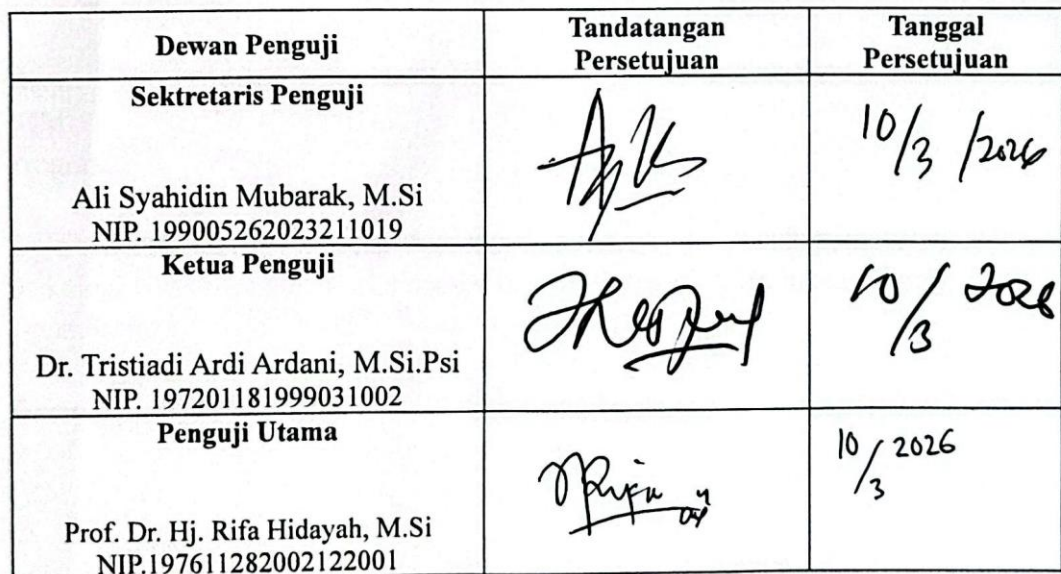 Dewan Penguji
Tandatangan
Persetujuan
Tanggal
Persetujuan
Sektretaris Penguji
Ali Syahidin Mubarak, M.Si
NIP. 199005262023211019
10/3 /2026
Ketua Penguji
Dr. Tristiadi Ardi Ardani, M.Si.Psi
NIP. 197201181999031002
10/3 2026
Penguji Utama
Prof. Dr. Hj. Rifa Hidayah, M.Si
NIP.197611282002122001
10/3 2026